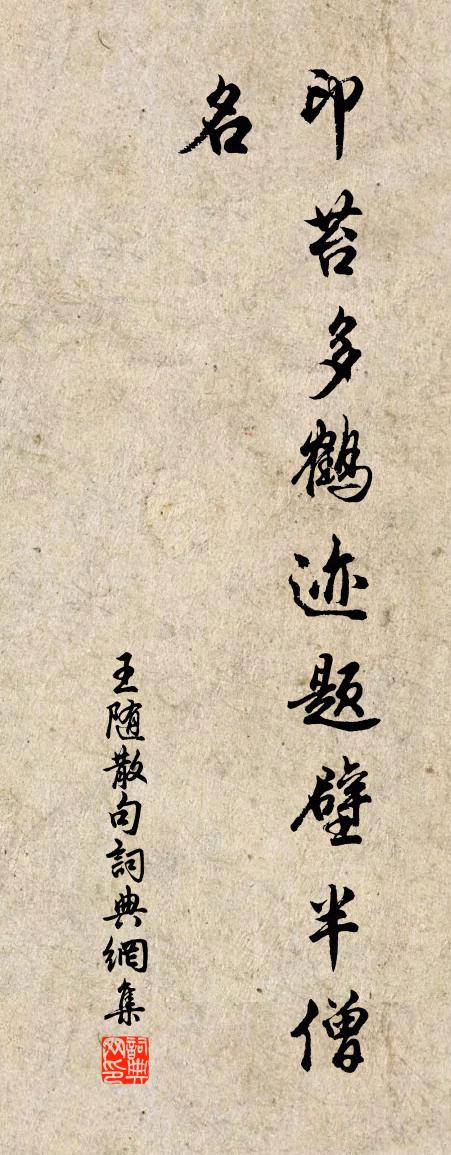 印苔多鹤迹题壁半僧
名
王随散句詞典網集
詞典网印